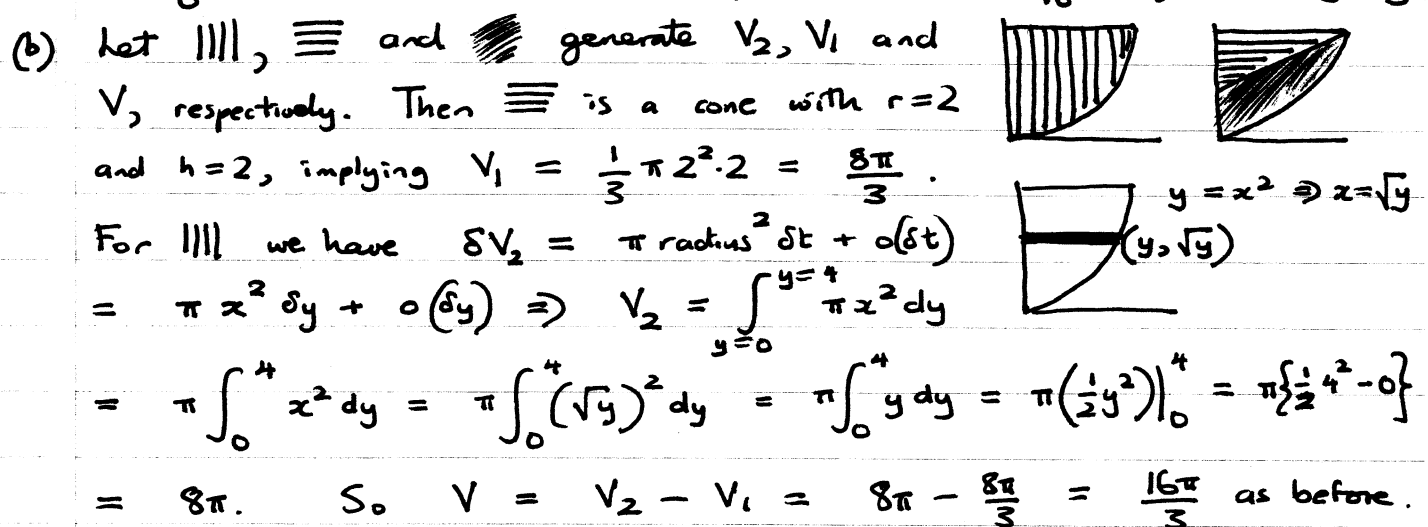 (b) Let ||||, ≡ and generate V₂, V₁ and
V, respectively. Then ≡ is a cone with r=2
and h=2, implying V₁ = 1/3 π 2²·2 = 8π/3.
y = x² ⇒ x=√y
For |||| we have δV₂ = π radius² δt + o(δt)
(y, √y)
= π x² δy + o(δy) ⇒ V₂ = ∫_{y=0}^{y=4} π x² dy
= π ∫₀⁴ x² dy = π ∫₀⁴ (√y)² dy = π ∫₀⁴ y dy = π(½y²)|₀⁴ = π{½ 4² - 0}
= 8π. So V = V₂ - V₁ = 8π - 8π/3 = 16π/3 as before.